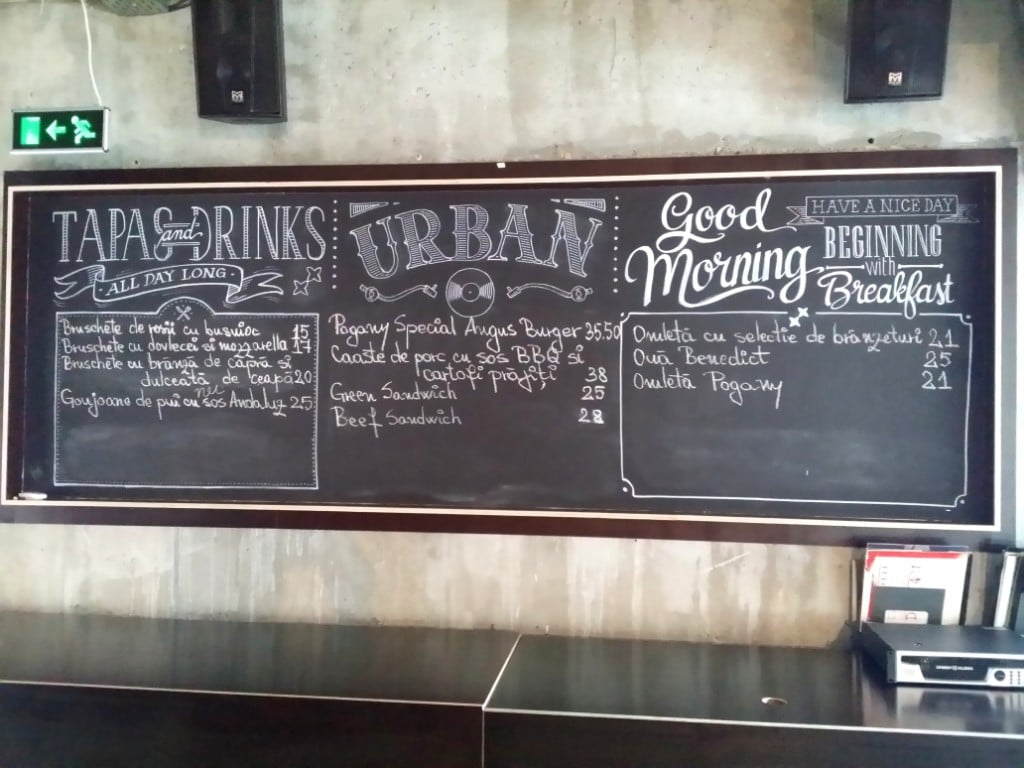 TAPAS and DRINKS
ALL DAY LONG
Bruschete de roșii cu busuioc 15
Bruschete cu dovlecei si mozzarella 17
Bruschete cu brânză de capra si
dulceată de ceapă 20
Goujoane de pui cu sos Andaluz 25
URBAN
Pogany Special Angus Burger 35.50
Coaste de porc cu sos BBQ si
cartofi prăjiți 38
Green Sandwich 25
Beef Sandwich 28
Good
Morning
HAVE A NICE DAY
BEGINNING
with
Breakfast
Omletă cu selectie de brânzeturi 21
Ouă Benedict 25
Omletă Pogany 21